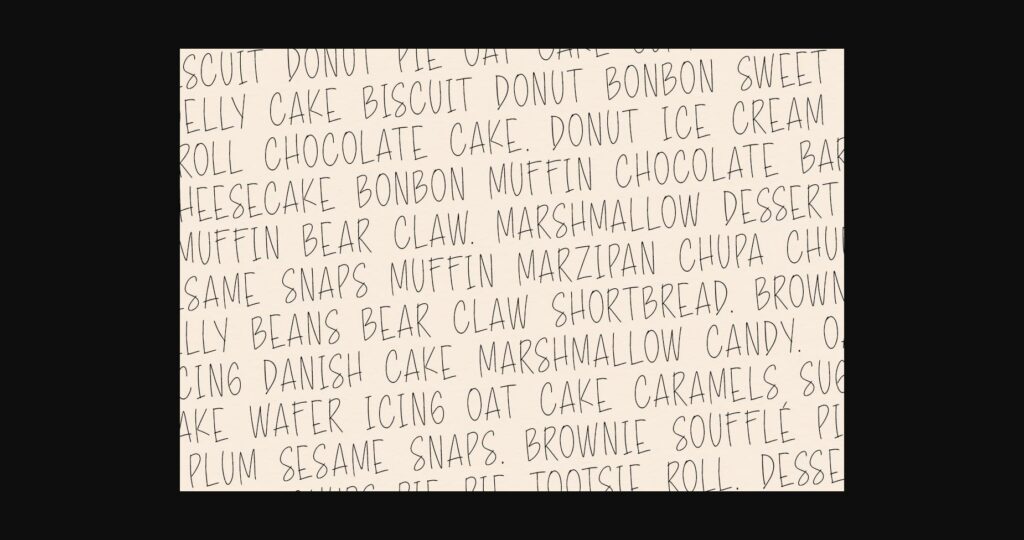 DONUT PIE OAT CAKE
CAKE BISCUIT DONUT BONBON SWEET
ROLL CHOCOLATE CAKE. DONUT ICE CREAM
BONBON MUFFIN CHOCOLATE
MUFFIN BEAR CLAW. MARSHMALLOW DESSERT
SNAPS MUFFIN MARZIPAN CHUPA
BEANS BEAR CLAW SHORTBREAD.
DANISH CAKE MARSHMALLOW CANDY.
WAFER ICING OAT CAKE CARAMELS
PLUM SESAME SNAPS. BROWNIE SOUFFLÉ
PIE PIE TOOTSIE ROLL.